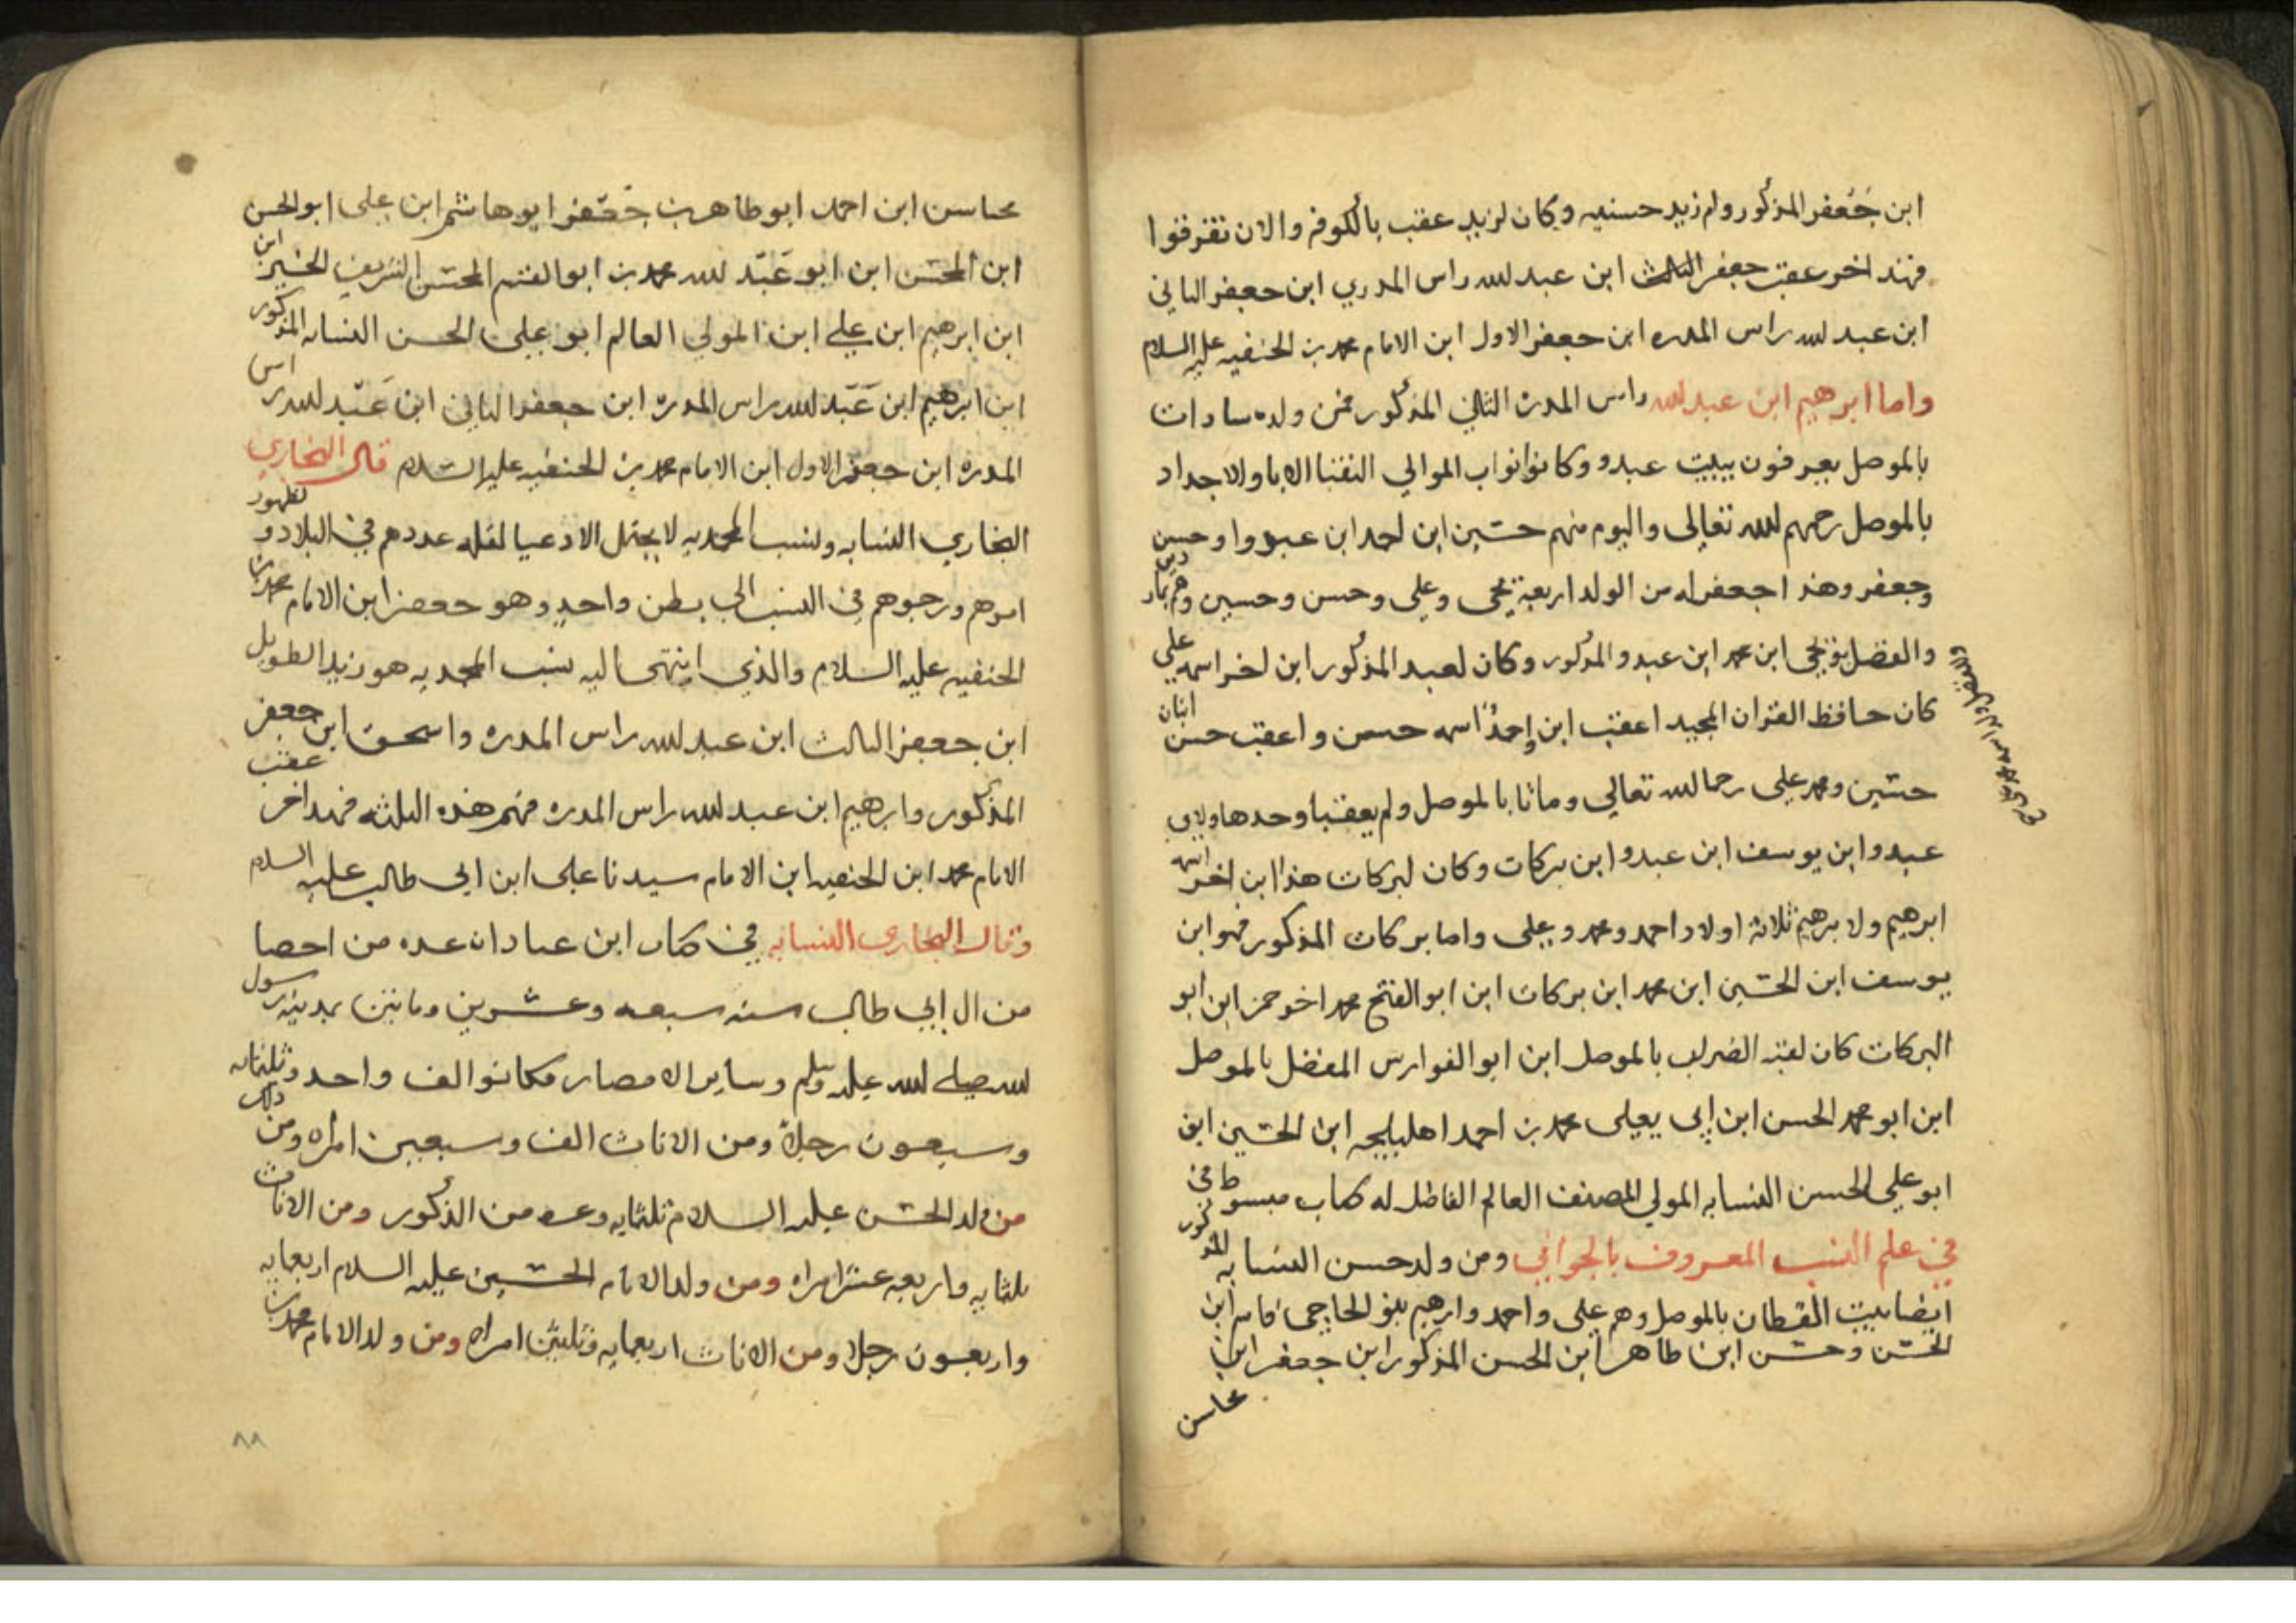 ابن جعفر المذكور وام زيد حسنيه وكان لزيد عقب بالكوفه والان تفرقوا
فهذا اخر عقب جعفر الثالث ابن عبد الله راس المدري ابن جعفر الثاني
ابن عبد الله راس المدره ابن جعفر الاول ابن الامام محمد بن الحنفيه عليه السلام
واما ابرهيم ابن عبد الله راس المدره الثاني المذكور فمن ولده سادات
بالموصل يعرفون ببيت عبدو وكانوا نواب الموالي النقبا الابا والاجداد
بالموصل رحمهم الله تعالى واليوم منهم حسين ابن احمد ابن عبدوا وحسن
وجعفر وهذا جعفر له من الولد اربعة يحيى وعلي وحسن وحسين وهم
والفضل بن يحيى ابن محمد ابن عبدو المذكور وكان لعبد المذكور ابن اخر اسمه علي
كان حافظ القران المجيد اعقب ابن واحدٌ اسمه حسن واعقب حسن ابنان
حسين ومحمد علي رحما الله تعالى وماتا بالموصل ولم يعقبا
عبدوا ابن يوسف ابن عبدو ابن بركات وكان لبركات هذا ابن اخر اسمه
ابرهيم ولابرهيم ثلاثة اولاد احمد ومحمد وعلى واما بركات المذكور فهو ابن
يوسف ابن الحسين ابن محمد ابن بركات ابن ابو الفتح محمد اخو حمزه ابن ابو
البركات كان لقبه بالموصل ابن ابو الفوارس المفضل بالموصل
ابن ابو محمد الحسن ابن ابى يعلى محمد بن احمد ابن الحسين ابن
ابو علي الحسن النسابه المولي المصنف العالم الفاضل له كتاب مبسوط في
في علم النسب المعروف بالجواني ومن ولد حسن النسابه المذكور
ايضا بيت القطان بالموصل وهم على واحمد وابرهيم بنو الحاجي قاسم ابن
الحسن وحسن ابن طاهر ابن الحسن المذكور ابن جعفر ابن
محاسن
محاسن ابن احمد ابو طاهر بن جعفر ابو هاشم ابن على ابو الحسن
ابن المحسن ابن ابو عبد الله محمد بن ابو الغنم المحسن الشريف ابن
ابن ابرهيم ابن علي ابن المولي العالم ابو علي الحسن النسابه المذكور
ابن ابرهيم ابن عبد الله راس المدره ابن جعفر الثاني ابن عبد الله راس
المدره ابن جعفر الاول ابن الامام محمد بن الحنفيه عليه السلام قال البخاري
البخاري النسابه ونسب المحمديه لا يحتمل الادعيا لقله عددهم في البلاد ولظهور
امرهم ورجوهم في النسب الى بطن واحد وهو جعفر ابن الامام محمد بن
الحنفيه عليه السلام والذي اينتهى اليه نسب المحمديه هو زيد الطويل
ابن جعفر الثالث ابن عبد الله راس المدره واسحق ابن جعفر
المذكور وابرهيم ابن عبد الله راس المدره فهم هذه الثلثه فهذا اخر عقب
الامام محمد ابن الحنفيه ابن الامام سيدنا على ابن ابي طالب عليه السلام
وقال البخاري النسابه في كتاب ابن عبادان عده من احصا
من ال ابي طالب سنه سبعه وعشرين ومايتن بمدينه رسول
الله صلى الله عليه وسلم وساير الامصار فكانوا الف واحد وثلثمايه
وسبعون رجلاً ومن الاناث الف وسبعين امراه ومن ذلك
من ولد الحسن عليه السلام ثلثمايه من الذكور ومن الاناث
ثلثمايه واربعه عشر امراه ومن ولد الامام الحسين عليه السلام اربعمايه
واربعون رجلا ومن الاناث اربعمايه وثلثين امراه ومن ولد الامام محمد بن
٨٨